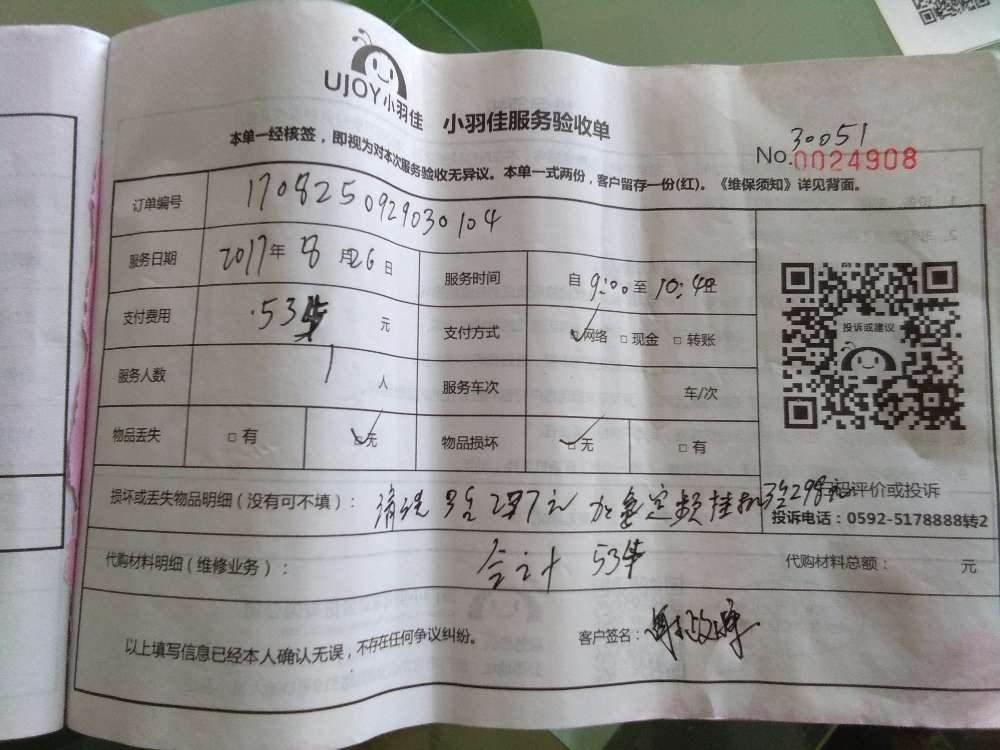 UJOY小羽佳
小羽佳服务验收单
30051
No.0024908
本单一经核签，即视为对本次服务验收无异议。本单一式两份，客户留存一份(红)。《维保须知》详见背面。
订单编号 1708250929030104
服务日期 2017年 8 月26日 服务时间 自 9:00 至 10:40
支付费用 元 支付方式 网络 □ 现金 □ 转账
服务人数 1 人 服务车次 车/次
物品丢失 □ 有 □无 物品损坏 □ 无 □ 有
投诉或建议
扫码评价或投诉
投诉电话：0592-5178888转2
损坏或丢失物品明细（没有可不填）：清洗 定频挂机
代购材料明细（维修业务）： 合计 代购材料总额： 元
以上填写信息已经本人确认无误，不存在任何争议纠纷。 客户签名：